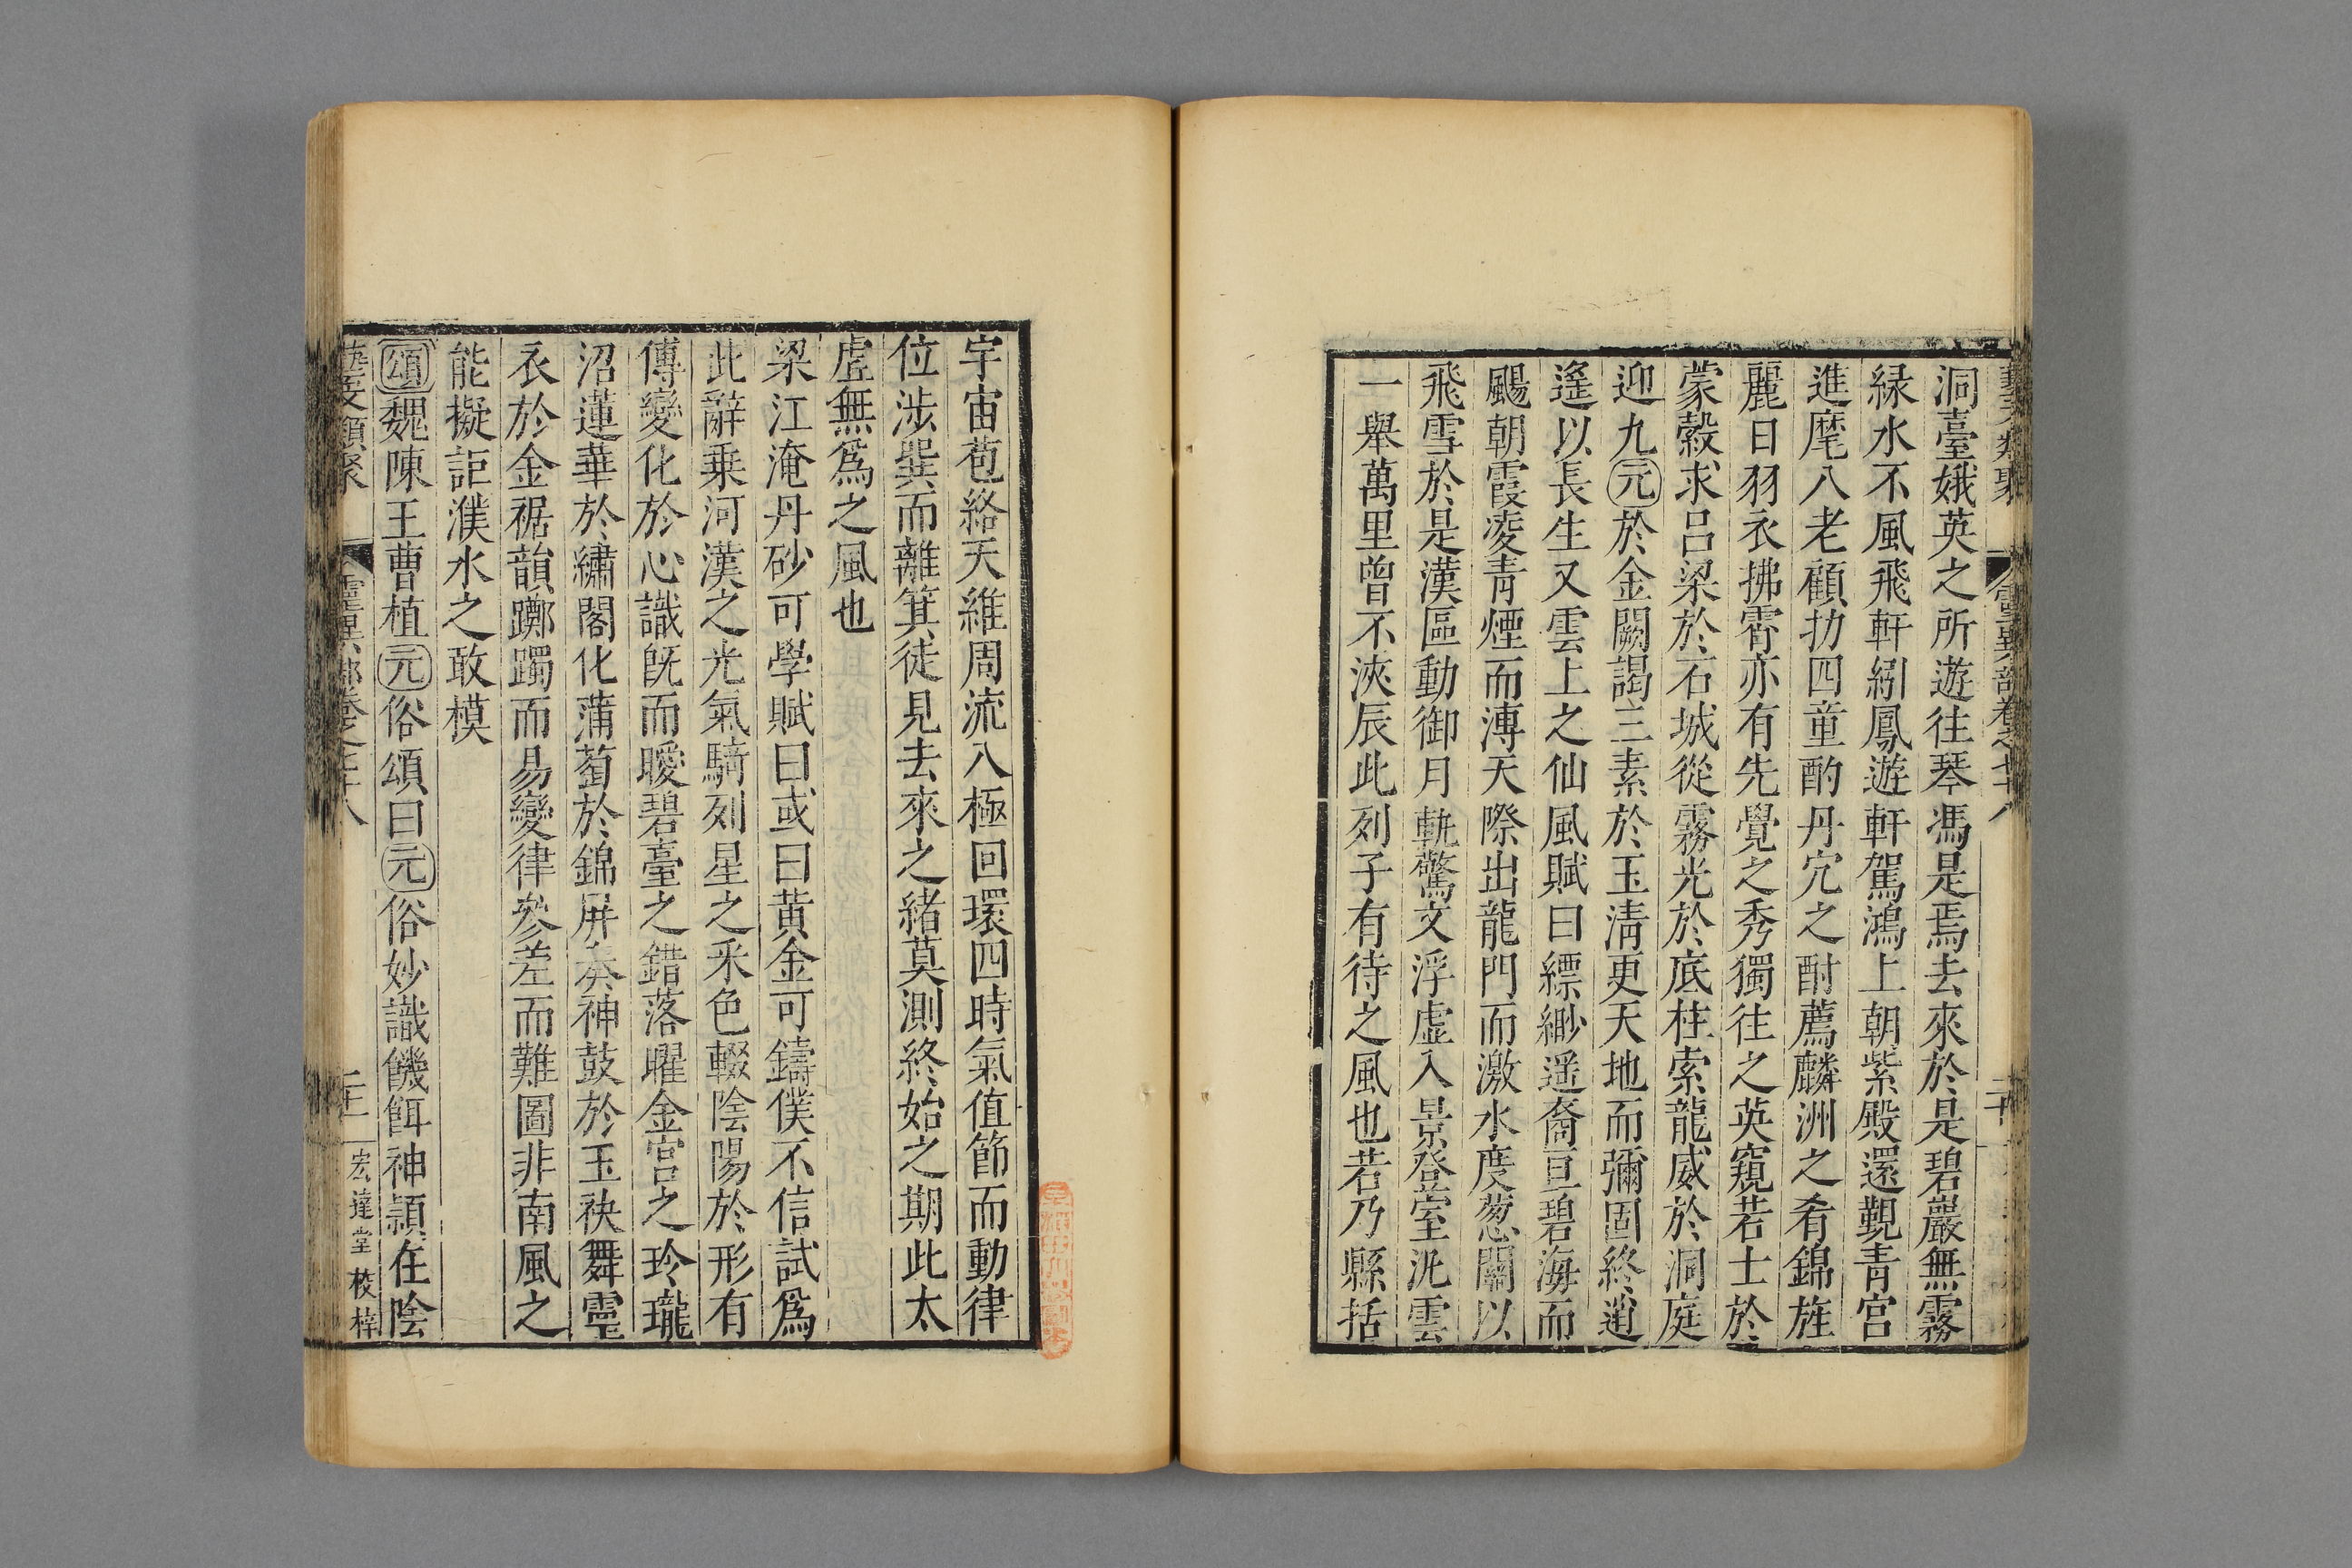 藝文類聚 靈異部卷之七十八 二十
洞臺娥英之所遊往琴馮是焉去來於是碧巖無霧
緑水不風飛軒紖鳳遊軒駕鴻上朝紫殿還觀青宮
進麾八老顧扐四童酌丹穴之酎薦麟洲之肴錦旌
麗日羽衣拂霄亦有先覺之秀獨往之英窺若士於
蒙縠求呂梁於石城從霧光於底柱索龍威於洞庭
迎九元於金闕謁三素於玉清更天地而彌固終逍
遙以長生又雲上之仙風賦曰縹緲遥裔亘碧海而
颺朝霞凌青煙而溥天際出龍門而激水度葱關以
飛雪於是漢區動御月軌驚文浮虛入景登空汎雲
一舉萬里曾不浹辰此列子有待之風也若乃縣括
宇宙苞絡天維周流八極回環四時氣值節而動律
位涉巽而離箕徒見去來之緒莫測終始之期此太
虛無爲之風也
梁江淹丹砂可學賦曰或曰黃金可鑄僕不信試爲
此辭乗河漢之光氣騎列星之釆色輟陰陽於形有
傳變化於心識旣而曖碧臺之錯落曜金宮之玲瓏
沼蓮華於繡閣化蒲萄於錦屏奏神鼓於玉袂舞靈
衣於金裾韻躑躅而易變律參差而難圖非南風之
能擬詎濮水之敢模
頌魏陳王曹植元俗頌曰元俗妙識饑餌神頴在陰
藝文類聚 靈異部卷之七十八 二十一 宏達堂校梓